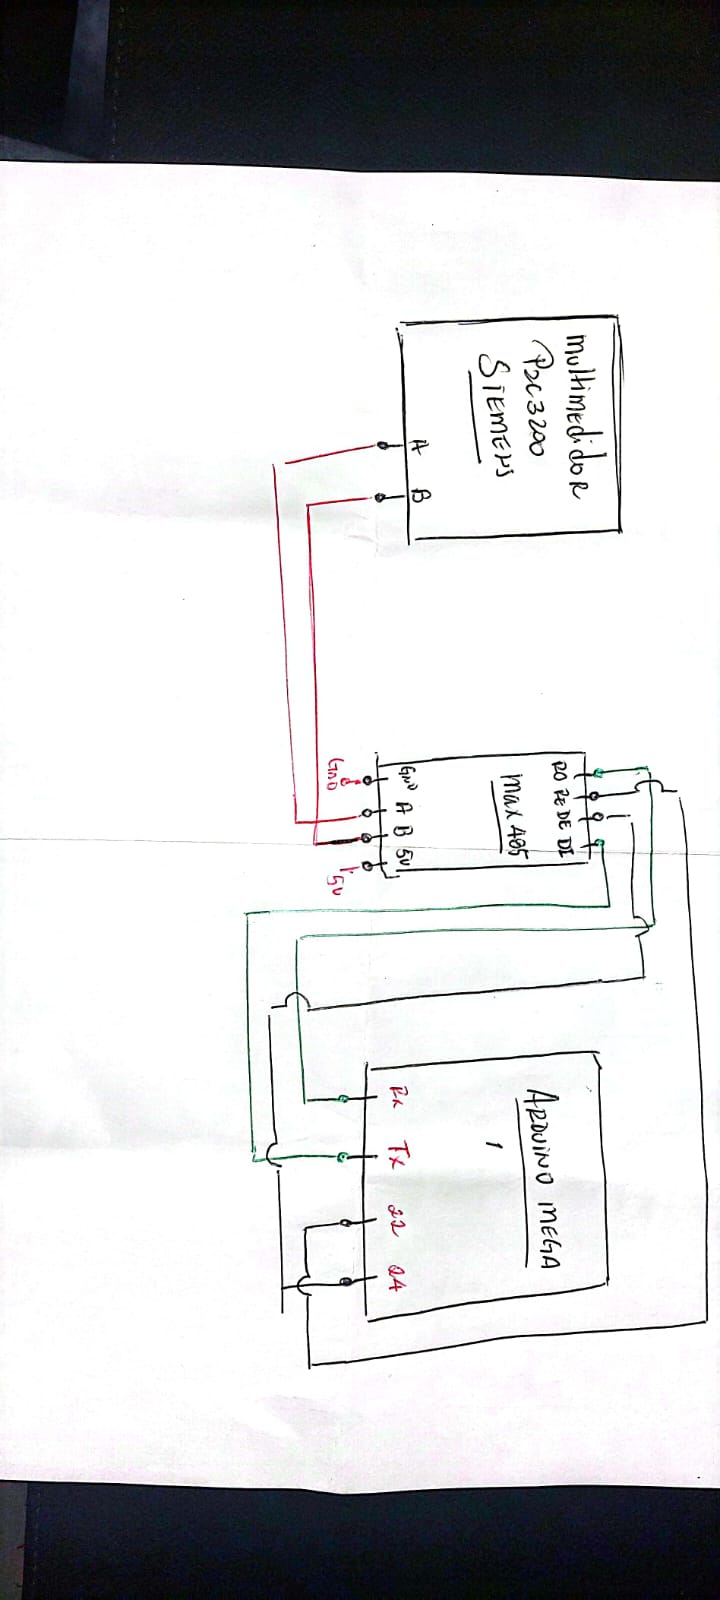 multimedidor
P2C3200
SiEMENS
A
B
RO RE DE DI
max 485
GND A B 5V
GND
5V
ARDUINO MEGA
RX
TX
22
24